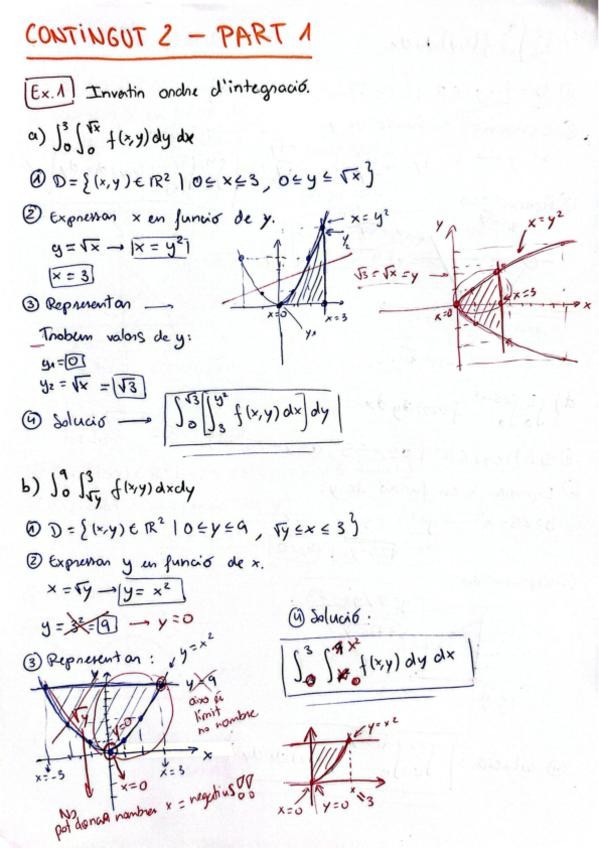 CONTINGUT 2 - PART 1
Ex.1 Invertir ordre d'integració.
a) ∫₀³ ∫₀^√x f(x,y) dy dx
① D = {(x,y) ∈ ℝ² | 0 ≤ x ≤ 3, 0 ≤ y ≤ √x}
② Expressar x en funció de y.
y = √x → x = y²
x = 3
③ Representar →
x = y²
y₂
x=0
y₁
x=3
y
x = y²
√3 = √x = y
x=3
x=0
x
Trobem valors de y:
y₁ = 0
y₂ = √x = √3
④ Solució → ∫₀^√3 [∫₃^y² f(x,y) dx] dy
b) ∫₀⁹ ∫_√y³ f(x,y) dx dy
① D = {(x,y) ∈ ℝ² | 0 ≤ y ≤ 9, √y ≤ x ≤ 3}
② Expressar y en funció de x.
x = √y → y = x²
y = 3² = 9 → y = 0
③ Representar:
y
y = x²
y = 9
això és
límit
no nombre
√y
y=0
x
x=-3
x=0
x=3
No
pot donar nombres x = negatius!!
④ Solució:
∫₀³ ∫₀^x² f(x,y) dy dx
y = x²
x=0
y=0
x=3